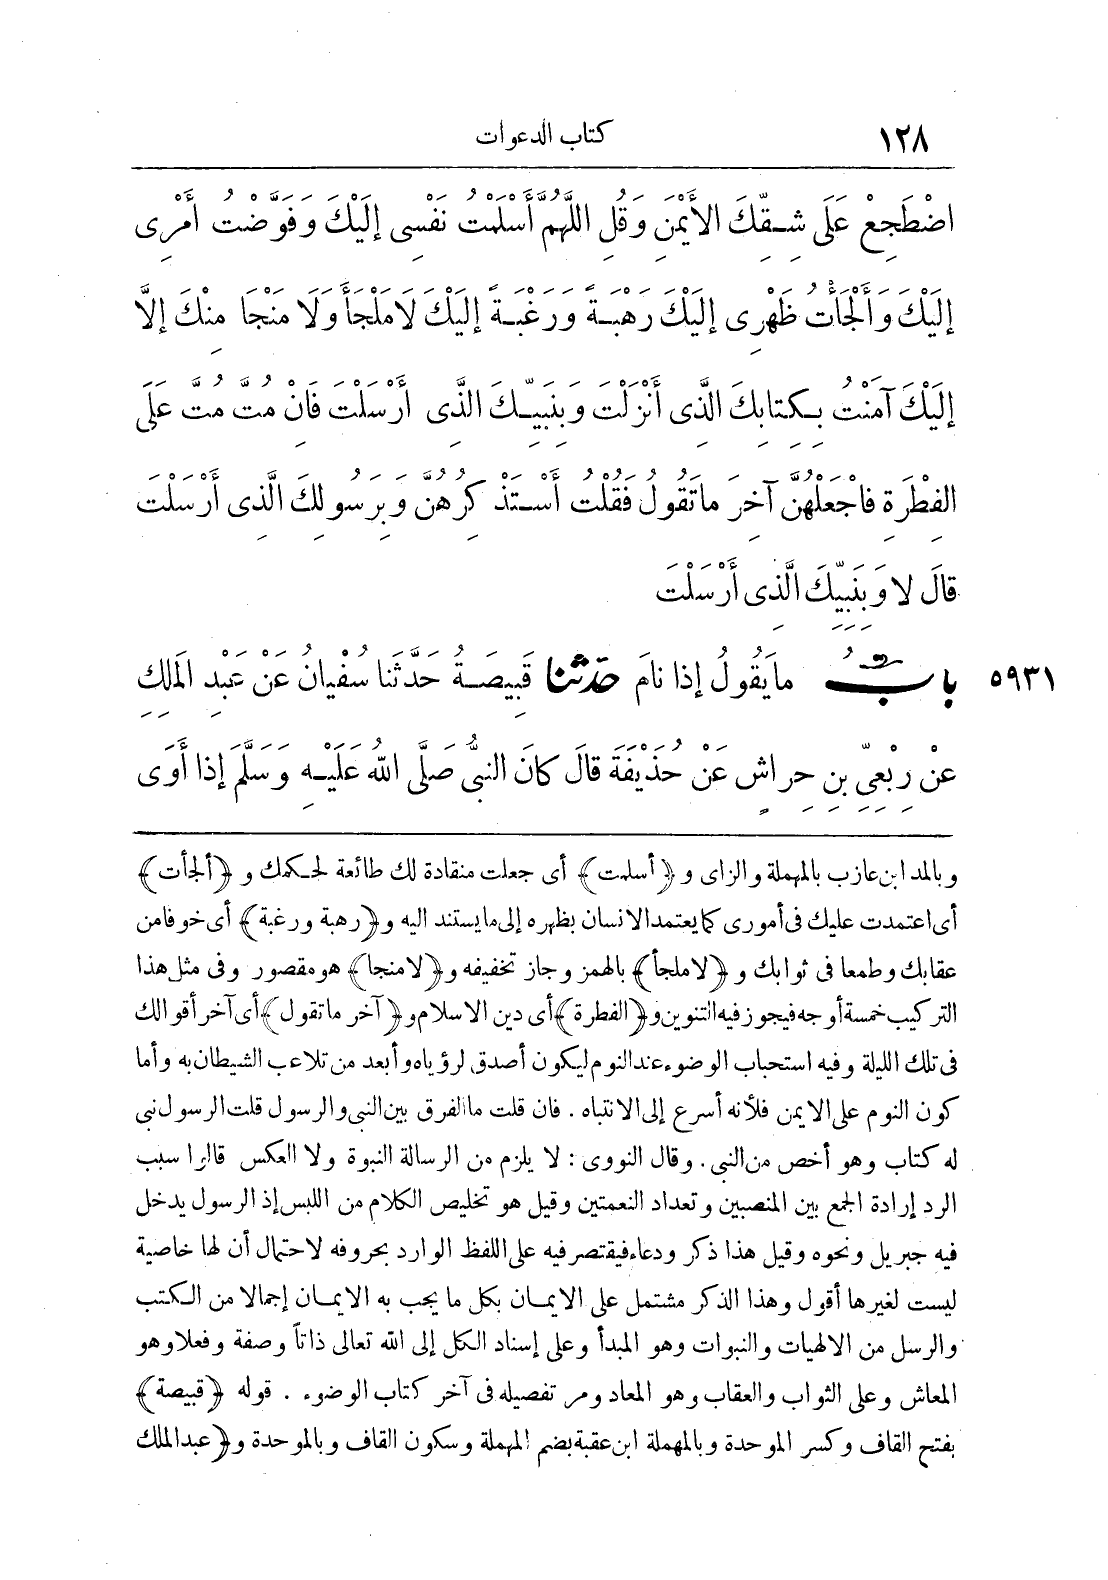 ١٢٨ كتاب الدعوات
اضْطَجِعْ عَلَى شِقِّكَ الأَيْمَنِ وَقُلِ اللَّهُمَّ أَسْلَمْتُ نَفْسِى إِلَيْكَ وَفَوَّضْتُ أَمْرِى
إِلَيْكَ وَأَلْجَأْتُ ظَهْرِى إِلَيْكَ رَهْبَةً وَرَغْبَةً إِلَيْكَ لَا مَلْجَأَ وَلَا مَنْجَا مِنْكَ إِلَّا
إِلَيْكَ آمَنْتُ بِكِتَابِكَ الَّذِى أَنْزَلْتَ وَبِنَبِيِّكَ الَّذِى أَرْسَلْتَ فَانْ مُتَّ مُتَّ عَلَى
الفِطْرَةِ فَاجْعَلْهُنَّ آخِرَ مَا تَقُولُ فَقُلْتُ أَسْتَذْكِرُهُنَّ وَبِرَسُولِكَ الَّذِى أَرْسَلْتَ
قَالَ لا وَبِنَبِيِّكَ الَّذِى أَرْسَلْتَ
٥٩٣١ بابُ مَا يَقُولُ إِذَا نَامَ حدّثنا قَبِيصَةُ حَدَّثَنا سُفْيَانُ عَنْ عَبْدِ المَلِكِ
عَنْ رِبْعِيِّ بنِ حِراشٍ عَنْ حُذَيْفَةَ قَالَ كَانَ النبىُّ صَلَّى اللهُ عَلَيْهِ وَسَلَّمَ إِذَا أَوَى
وبالمد ابن عازب بالمهملة والزاى و ﴿أسلمت﴾ أى جعلت منقادة لك طائعة لحكمك و ﴿ألجأت﴾
أى اعتمدت عليك فى أمورى كما يعتمد الانسان بظهره إلى ما يستند اليه و ﴿رهبة ورغبة﴾ أى خوفا من
عقابك وطمعا فى ثوابك و ﴿لا ملجأ﴾ بالهمز وجاز تخفيفه و ﴿لا منجا﴾ هو مقصور وفى مثل هذا
التركيب خمسة أوجه فيجوز فيه التنوين و ﴿الفطرة﴾ أى دين الاسلام و ﴿آخر ما تقول﴾ أى آخر أقوالك
فى تلك الليلة وفيه استحباب الوضوء عند النوم ليكون أصدق لرؤياه وأبعد من تلاعب الشيطان به وأما
كون النوم على الايمن فلأنه أسرع إلى الانتباه . فان قلت ما الفرق بين النبى والرسول قلت الرسول نبى
له كتاب وهو أخص من النبى . وقال النووى : لا يلزم من الرسالة النبوة ولا العكس قالوا سبب
الرد إرادة الجمع بين المنصبين وتعداد النعمتين وقيل هو تخليص الكلام من اللبس إذ الرسول يدخل
فيه جبريل ونحوه وقيل هذا ذكر ودعاء فيقتصر فيه على اللفظ الوارد بحروفه لاحتمال أن لها خاصية
ليست لغيرها أقول وهذا الذكر مشتمل على الايمان بكل ما يجب به الايمان إجمالا من الكتب
والرسل من الالهيات والنبوات وهو المبدأ وعلى إسناد الكل إلى الله تعالى ذاتاً وصفة وفعلا وهو
المعاش وعلى الثواب والعقاب وهو المعاد ومر تفصيله فى آخر كتاب الوضوء . قوله ﴿قبيصة﴾
بفتح القاف وكسر الموحدة وبالمهملة ابن عقبة بضم المهملة وسكون القاف وبالموحدة و ﴿عبد الملك